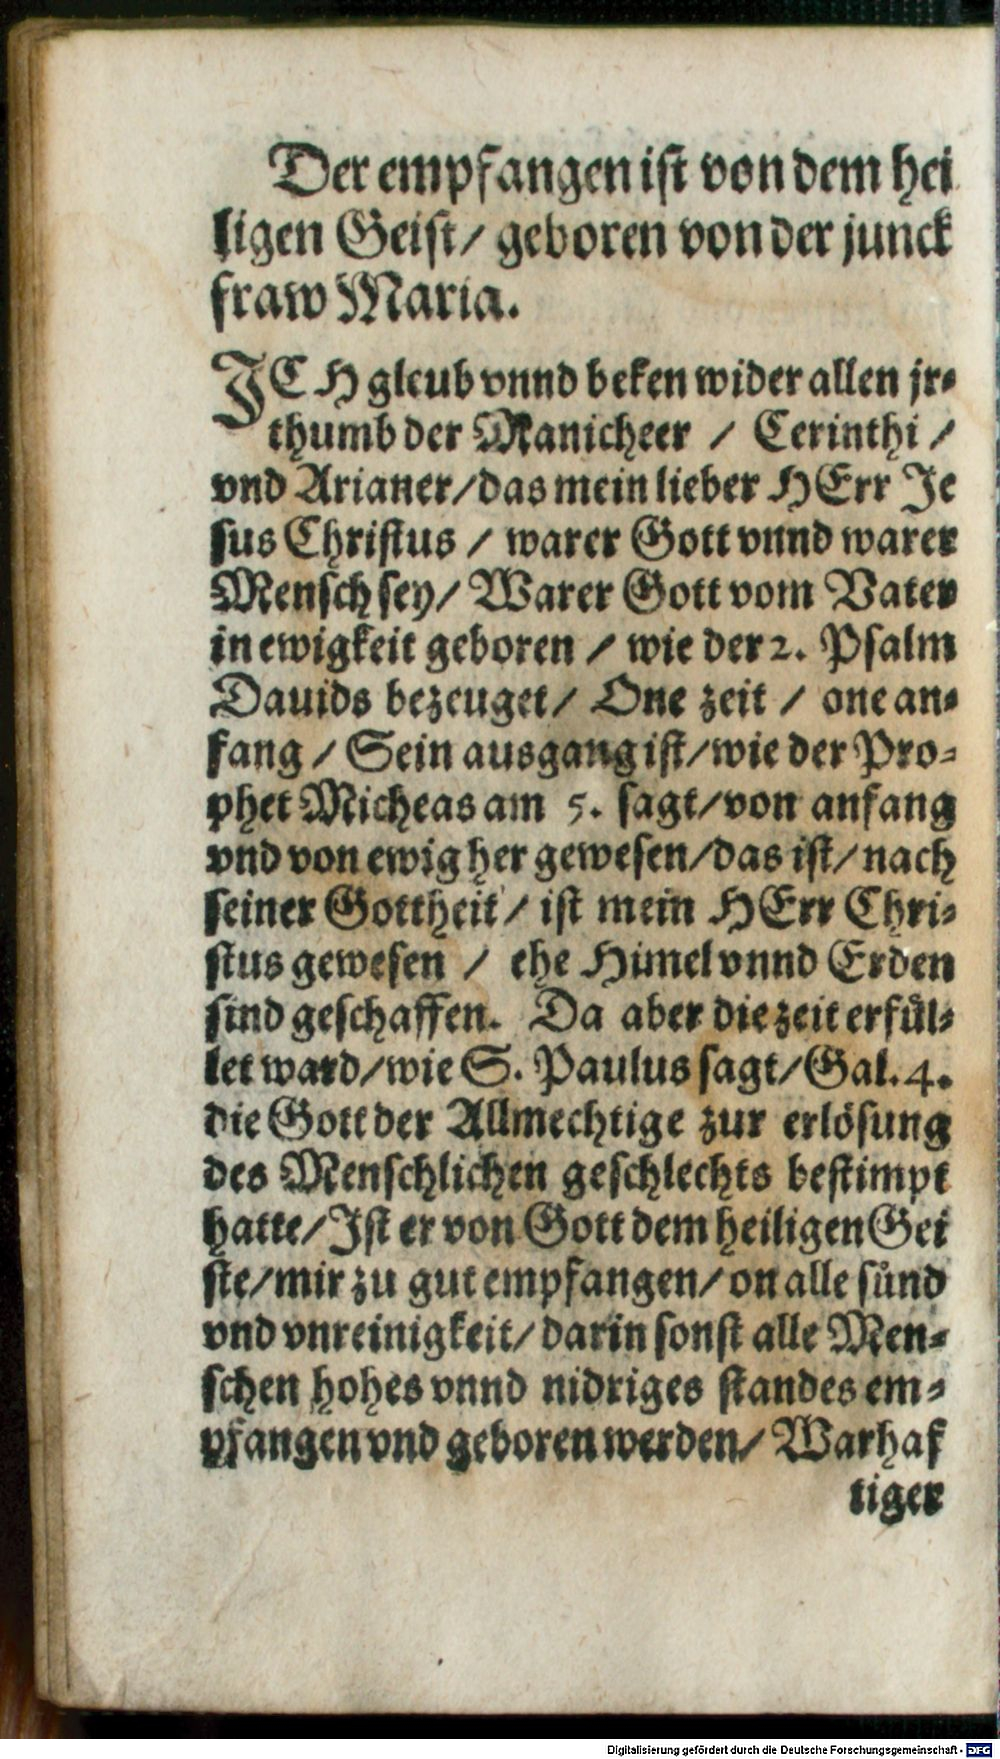 Der empfangen ist von dem hei
ligen Geist/ geboren von der junck
fraw Maria.
JCH gleub vnnd beken wider allen jr-
thumb der Manicheer / Cerinthi /
vnd Arianer/das mein lieber HErr Je
sus Christus / warer Gott vnnd warer
Mensch sey/ Warer Gott vom Vater
in ewigkeit geboren / wie der 2. Psalm
Dauids bezeuget/ One zeit / one an-
fang / Sein ausgang ist/wie der Pro-
phet Micheas am 5. sagt/von anfang
vnd von ewig her gewesen/das ist/nach
seiner Gottheit/ ist mein HErr Chri-
stus gewesen / ehe Himel vnnd Erden
sind geschaffen. Da aber die zeit erfül-
let ward/wie S. Paulus sagt/Gal. 4.
die Gott der Allmechtige zur erlösung
des Menschlichen geschlechts bestimpt
hatte/Ist er von Gott dem heiligen Gei
ste/mir zu gut empfangen/on alle sünd
vnd vnreinigkeit/darin sonst alle Men-
schen hohes vnnd nidriges standes em-
pfangen vnd geboren werden/ Warhaf
tiger
Digitalisierung gefördert durch die Deutsche Forschungsgemeinschaft - DFG